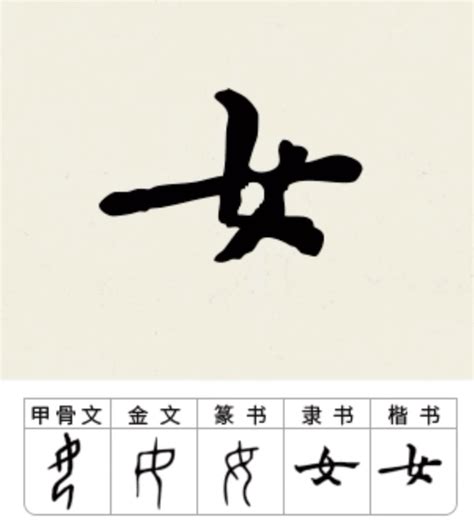 女
甲骨文 金文 篆书 隶书 楷书
女 女 女 女 女